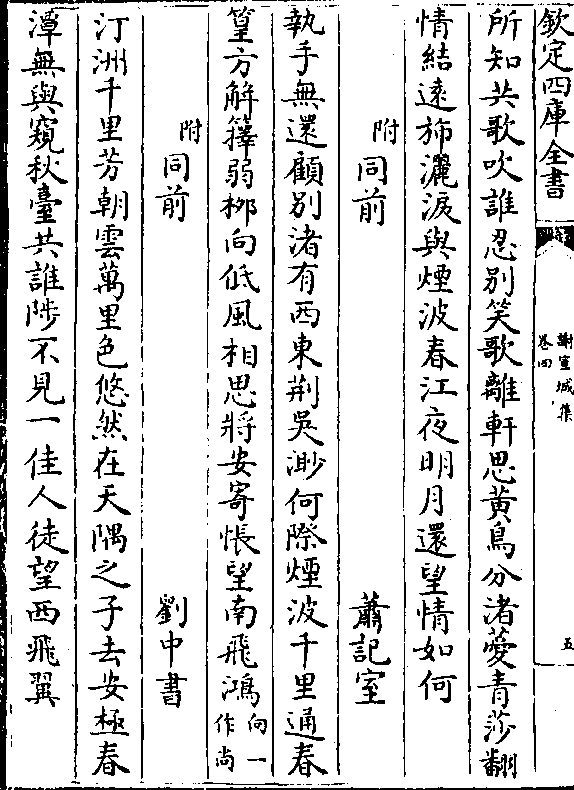 欽定四庫全書
謝宣城集
卷四
五
所知共歌吹誰忍别笑歌離軒思黃鳥分渚薆青莎翻
情結逺斾灑淚與煙波春江夜明月還望情如何
附同前　蕭記室
執手無還顧别渚有西東荆吳渺何際煙波千里通春
篁方解籜弱栁向低風相思將安寄悵望南飛鴻向一作尚
附同前　劉中書
汀洲千里芳朝雲萬里色悠然在天隅之子去安極春
潭無與窺秋臺共誰陟不見一佳人徒望西飛翼